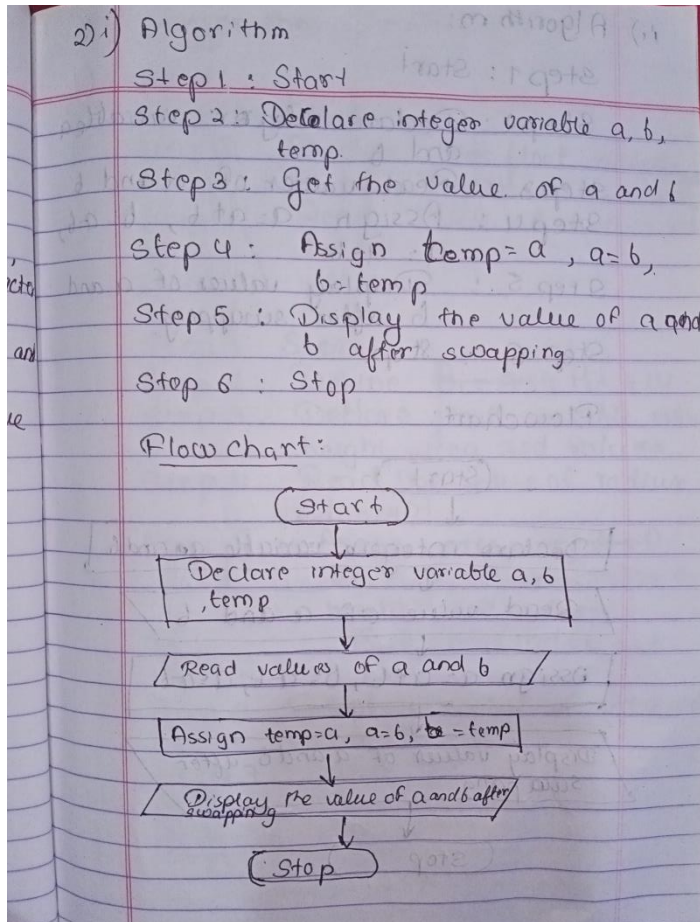 2) i) Algorithm
Step 1 : Start
Step 2 : Declare integer variable a, b,
temp.
Step 3 : Get the value of a and b
Step 4 : Assign temp = a , a = b,
b = temp
Step 5 : Display the value of a and
b after swapping
Stop 6 : Stop
Flow chart :
Start
Declare integer variable a, b
, temp
Read values of a and b
Assign temp=a, a=b, b=temp
Display the value of a and b after
swapping
Stop
and